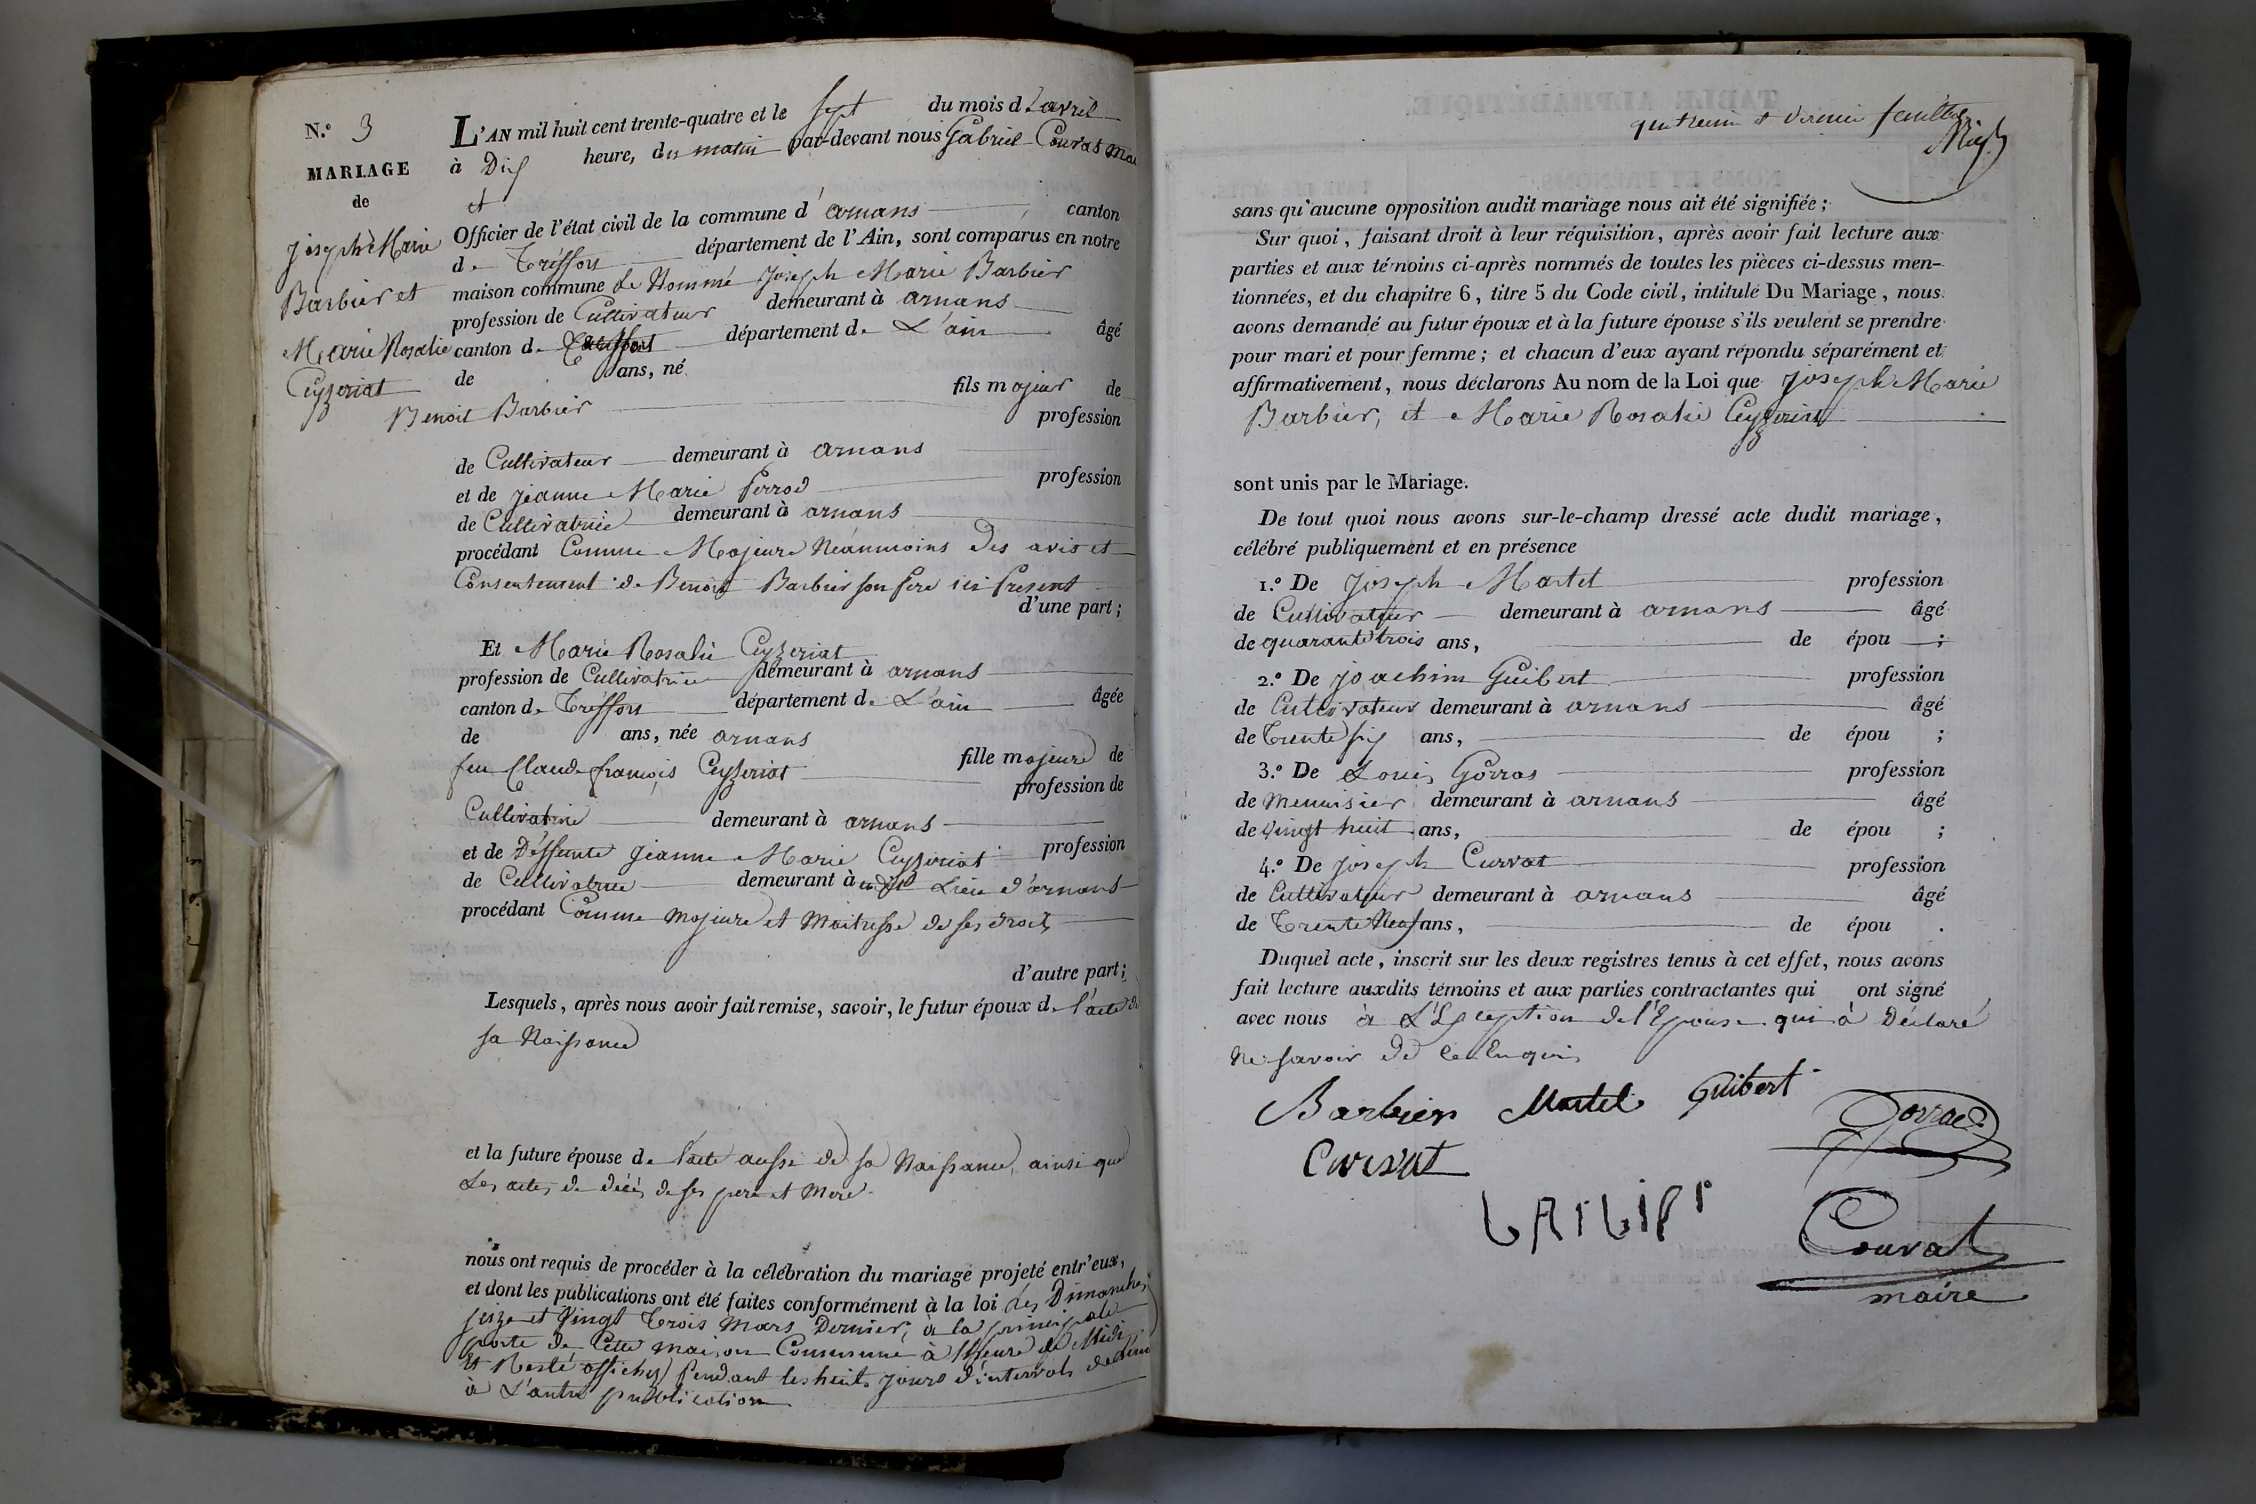 N.º 3
MARIAGE
de
Joseph Marie
Barbier et
Marie Rosalie
Ceyzeriat
L'AN mil huit cent trente-quatre et le sept du mois d'avril
à Dix heure, du matin par-devant nous Gabriel Couvat Mai
et
Officier de l'état civil de la commune d'arnans canton
de Tréffort département de l'Ain, sont comparus en notre
maison commune Le Nommé Joseph Marie Barbier
profession de Cultivateur demeurant à arnans
canton de Tréffort département de L'ain âgé
de ans, né fils majeur de
Benoit Barbier profession
de Cultivateur demeurant à arnans
et de Jeanne Marie Perrod profession
de Cultivatrice demeurant à arnans
procédant Comme Majeure Néanmoins des avis et
Consentement de Benoit Barbier son Pere ici Present
d'une part;
Et Marie Rosalie Ceyzeriat
profession de Cultivatrice demeurant à arnans
canton de Tréffort département de L'ain âgée
de ans, née arnans
feu Claude françois Ceyzeriat fille majeure de
profession de
Cultivatrice demeurant à arnans
et de Déffunte Jeanne Marie Ceyzeriat profession
de Cultivatrice demeurant à Lieu d'arnans
procédant Comme majeure et Maitresse de ses droits
d'autre part;
Lesquels, après nous avoir fait remise, savoir, le futur époux de l'acte de
sa Naissance
et la future épouse de l'acte aussi de sa Naissance, ainsi que
Les actes de décès de ses pere et Mere.
nous ont requis de procéder à la célébration du mariage projeté entr'eux,
et dont les publications ont été faites conformément à la loi Les Dimanches
seize et Vingt Trois Mars Dernier, à la principale
porte de Cette maison Commune à l'heure de Midi
Et Resté affichez Pendant les huit jours d'intervals
à L'autre publication
quatrieme et dernier feuillet
sans qu'aucune opposition audit mariage nous ait été signifiée;
Sur quoi, faisant droit à leur réquisition, après avoir fait lecture aux
parties et aux témoins ci-après nommés de toutes les pièces ci-dessus men-
tionnées, et du chapitre 6, titre 5 du Code civil, intitulé Du Mariage, nous
avons demandé au futur époux et à la future épouse s'ils veulent se prendre
pour mari et pour femme; et chacun d'eux ayant répondu séparément et
affirmativement, nous déclarons Au nom de la Loi que Joseph Marie
Barbier, et Marie Rosalie Ceyzeriat
sont unis par le Mariage.
De tout quoi nous avons sur-le-champ dressé acte dudit mariage,
célébré publiquement et en présence
1.º De Joseph Martel profession
de Cultivateur demeurant à arnans âgé
de quarante trois ans, de épou ;
2.º De Joachim Guibert profession
de Cultivateur demeurant à arnans âgé
de Trente six ans, de épou ;
3.º De Louis Gorras profession
de Menuisier demeurant à arnans âgé
de Vingt huit ans, de épou ;
4.º De Joseph Curvat profession
de Cultivateur demeurant à arnans âgé
de Trente Neuf ans, de épou .
Duquel acte, inscrit sur les deux registres tenus à cet effet, nous avons
fait lecture auxdits témoins et aux parties contractantes qui ont signé
avec nous à L'Exception de l'Epouse qui à Déclaré
Ne savoir de ce Enquis
Barbier Martel Guibert Gorras
Curvat
Couvat
maire